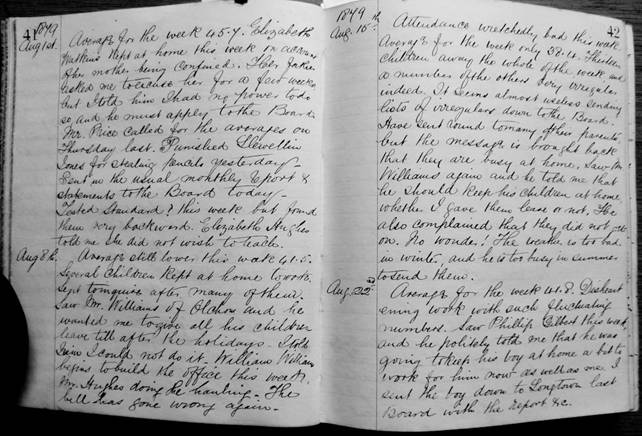 41
1849
Aug 1st.
Average for the week 45.7. Elizabeth
Watkins kept at home this week on account
of her mother being confined. Her father
asked me to excuse her for a few weeks
but I told him I had no power to do
so and he must apply to the Board.
Mr. Price called for the averages on
Thursday last. Punished Llewellin
Jones for stealing pencils yesterday—
Sent in the usual monthly Report &
statements to the Board today—
Tested Standard 1 this week but found
them very backward. Elizabeth Hughes
told me she did not wish to teach.
Aug 8th.
Average still lower this week 41.5.
Several children kept at home to work.
Sept to inquire after many of them.
Saw Mr. Williams of Olchon and he
wanted me to give all his children
leave till after the holidays— I told
him I could not do it. William Williams
began to build the office this week.
Mr. Hughes doing the hauling— The
bell has gone wrong again—
42
1849
Aug. 15th
Attendance wretchedly bad this week
Average for the week only 38.4. Thirteen
children away the whole of the week, and
a number of the others very irregular
indeed. It seems almost useless sending
lists of irregulars down to the Board.
Have sent round to many of their parents
but the message is brought back
that they are busy at home. Saw Mr.
Williams again and he told me that
he should keep his children at home
whether I gave them leave or not. He
also complained that they did not get
on. No wonder! The weather is too bad
in winter, and he is too busy in summer
to send them.
Aug. 22nd
Average for the week 41.8. Disheart
ening work with such fluctuating
numbers. Saw Phillip Gilbert this week
and he politely told me that he was
going to keep his boy at home a bit to
work for him now as well as me. I
sent the boy down to Longtown last
Board with the Report &c.